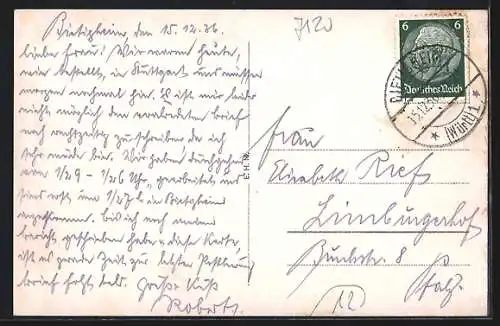 Bietigheim, den 15.12.36.
7120
Liebe Frau! Wir waren heute,
wie bestellt, in Stuttgart und müssen
morgen nochmal hin. Es ist mir leider
nicht möglich den verabredeten Brief
noch rechtzeitig zu schreiben da ich
sehr müde bin. Wir haben durchgehend
von 1/2 9 - 1/2 6 Uhr gearbeitet und
sind erst um 1/2 7 in Bietigheim
angekommen. Bis ich noch meinen
Bericht geschrieben habe + diese Karte,
ist es gerade Zeit zur letzten Postleerung
Brief folgt bald. Gruss + Kuß
Robert.
6 6
Deutsches Reich
BIETIGHEIM
15.12.36
(Württ) 1
E.H.N.
Frau
Elisabeth Rief
Limburgerhof
Buchstr. 8
Pfalz.
12